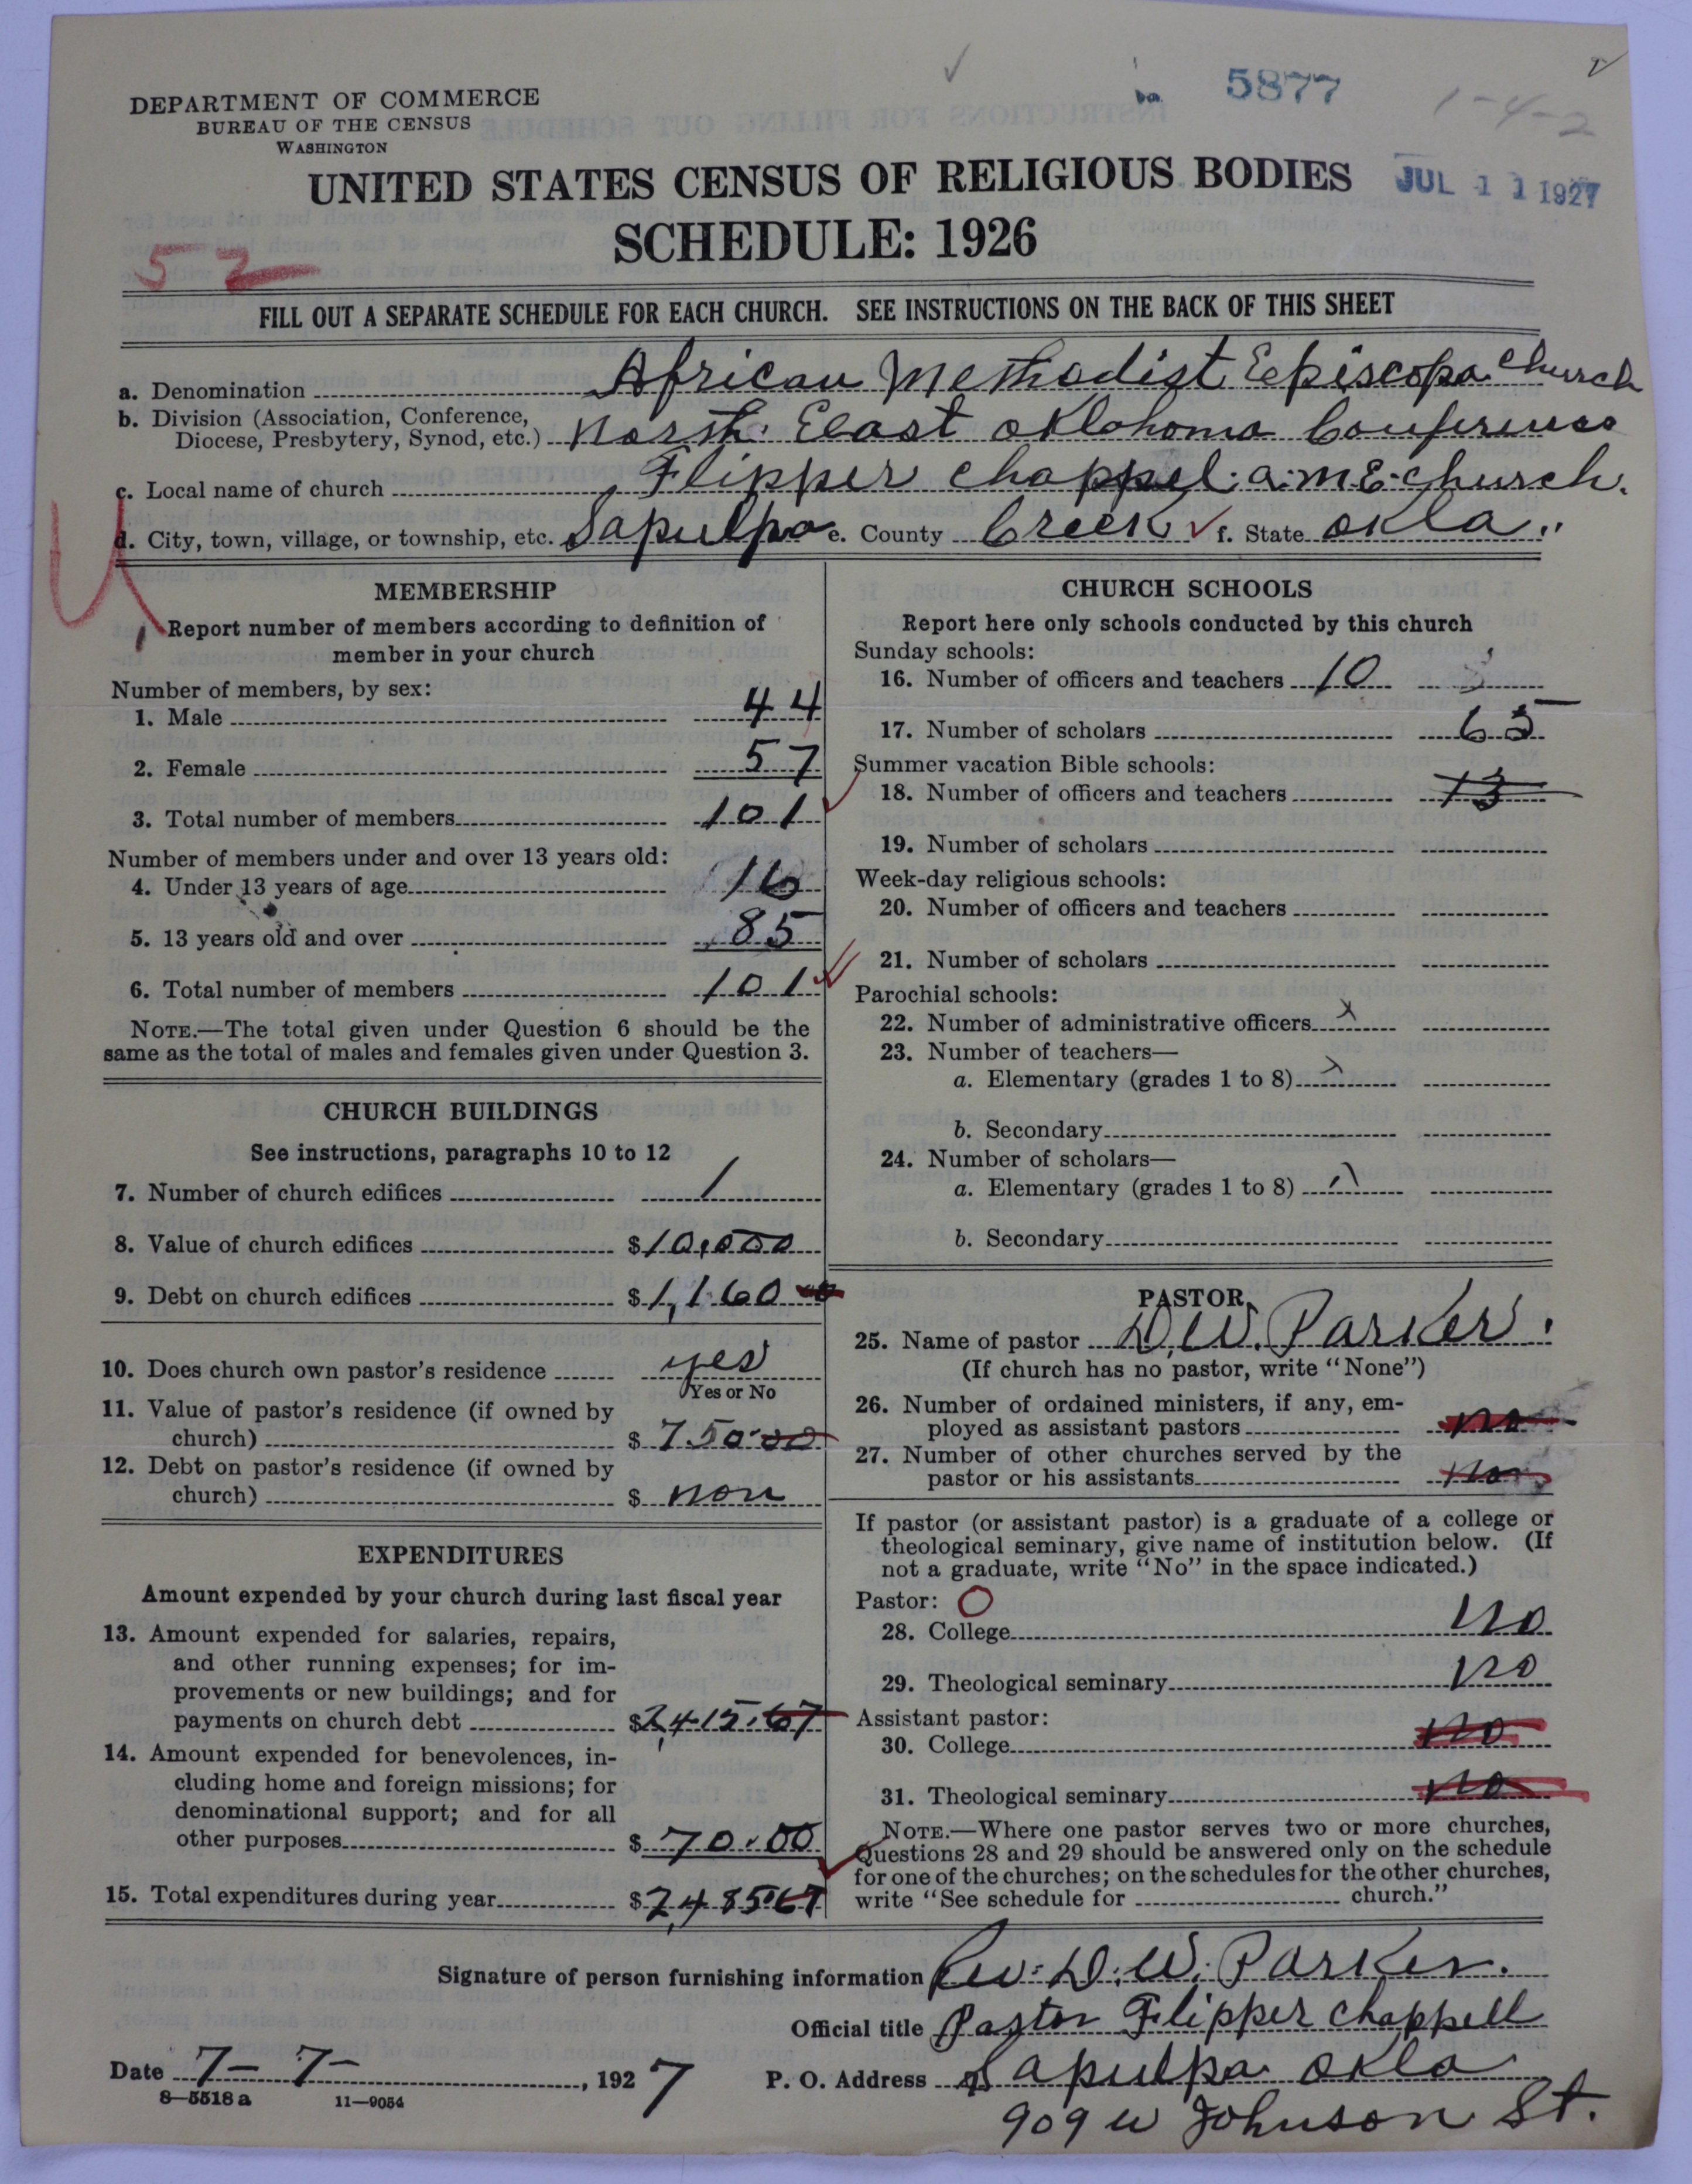 5877
1-4-2
DEPARTMENT OF COMMERCE
BUREAU OF THE CENSUS
WASHINGTON
UNITED STATES CENSUS OF RELIGIOUS BODIES
JUL 11 1927
SCHEDULE: 1926
52
FILL OUT A SEPARATE SCHEDULE FOR EACH CHURCH. SEE INSTRUCTIONS ON THE BACK OF THIS SHEET
a. Denomination African Methodist Episcopa Church
b. Division (Association, Conference,
Diocese, Presbytery, Synod, etc.) North East Oklohoma Conference
c. Local name of church Flipper chappel. a.m.E. church.
d. City, town, village, or township, etc. Sapulpa e. County Creek f. State Okla.
MEMBERSHIP
Report number of members according to definition of
member in your church
Number of members, by sex:
1. Male 44
2. Female 57
3. Total number of members 101
Number of members under and over 13 years old:
4. Under 13 years of age 16
5. 13 years old and over 85
6. Total number of members 101
NOTE.—The total given under Question 6 should be the
same as the total of males and females given under Question 3.
CHURCH BUILDINGS
See instructions, paragraphs 10 to 12
7. Number of church edifices 1
8. Value of church edifices $10,000
9. Debt on church edifices $1,160
10. Does church own pastor's residence yes
Yes or No
11. Value of pastor's residence (if owned by
church) $ 750.00
12. Debt on pastor's residence (if owned by
church) $ non
EXPENDITURES
Amount expended by your church during last fiscal year
13. Amount expended for salaries, repairs,
and other running expenses; for im-
provements or new buildings; and for
payments on church debt $2,415.67
14. Amount expended for benevolences, in-
cluding home and foreign missions; for
denominational support; and for all
other purposes $ 70.00
15. Total expenditures during year $2,485.67
CHURCH SCHOOLS
Report here only schools conducted by this church
Sunday schools:
16. Number of officers and teachers 10
17. Number of scholars 65
Summer vacation Bible schools:
18. Number of officers and teachers 13
19. Number of scholars
Week-day religious schools:
20. Number of officers and teachers
21. Number of scholars
Parochial schools:
22. Number of administrative officers x
23. Number of teachers—
a. Elementary (grades 1 to 8)
b. Secondary
24. Number of scholars—
a. Elementary (grades 1 to 8)
b. Secondary
PASTOR
25. Name of pastor D.W. Parker.
(If church has no pastor, write "None")
26. Number of ordained ministers, if any, em-
ployed as assistant pastors no
27. Number of other churches served by the
pastor or his assistants no
If pastor (or assistant pastor) is a graduate of a college or
theological seminary, give name of institution below. (If
not a graduate, write "No" in the space indicated.)
Pastor: O
28. College no
29. Theological seminary no
Assistant pastor:
30. College no
31. Theological seminary no
NOTE.—Where one pastor serves two or more churches,
Questions 28 and 29 should be answered only on the schedule
for one of the churches; on the schedules for the other churches,
write "See schedule for church."
Signature of person furnishing information Rev. D. W. Parker.
Official title Pastor Flipper chappell
Date 7-7-, 1927 P. O. Address Sapulpa Okla
8—5518a 11—9054
909 W Johnson St.